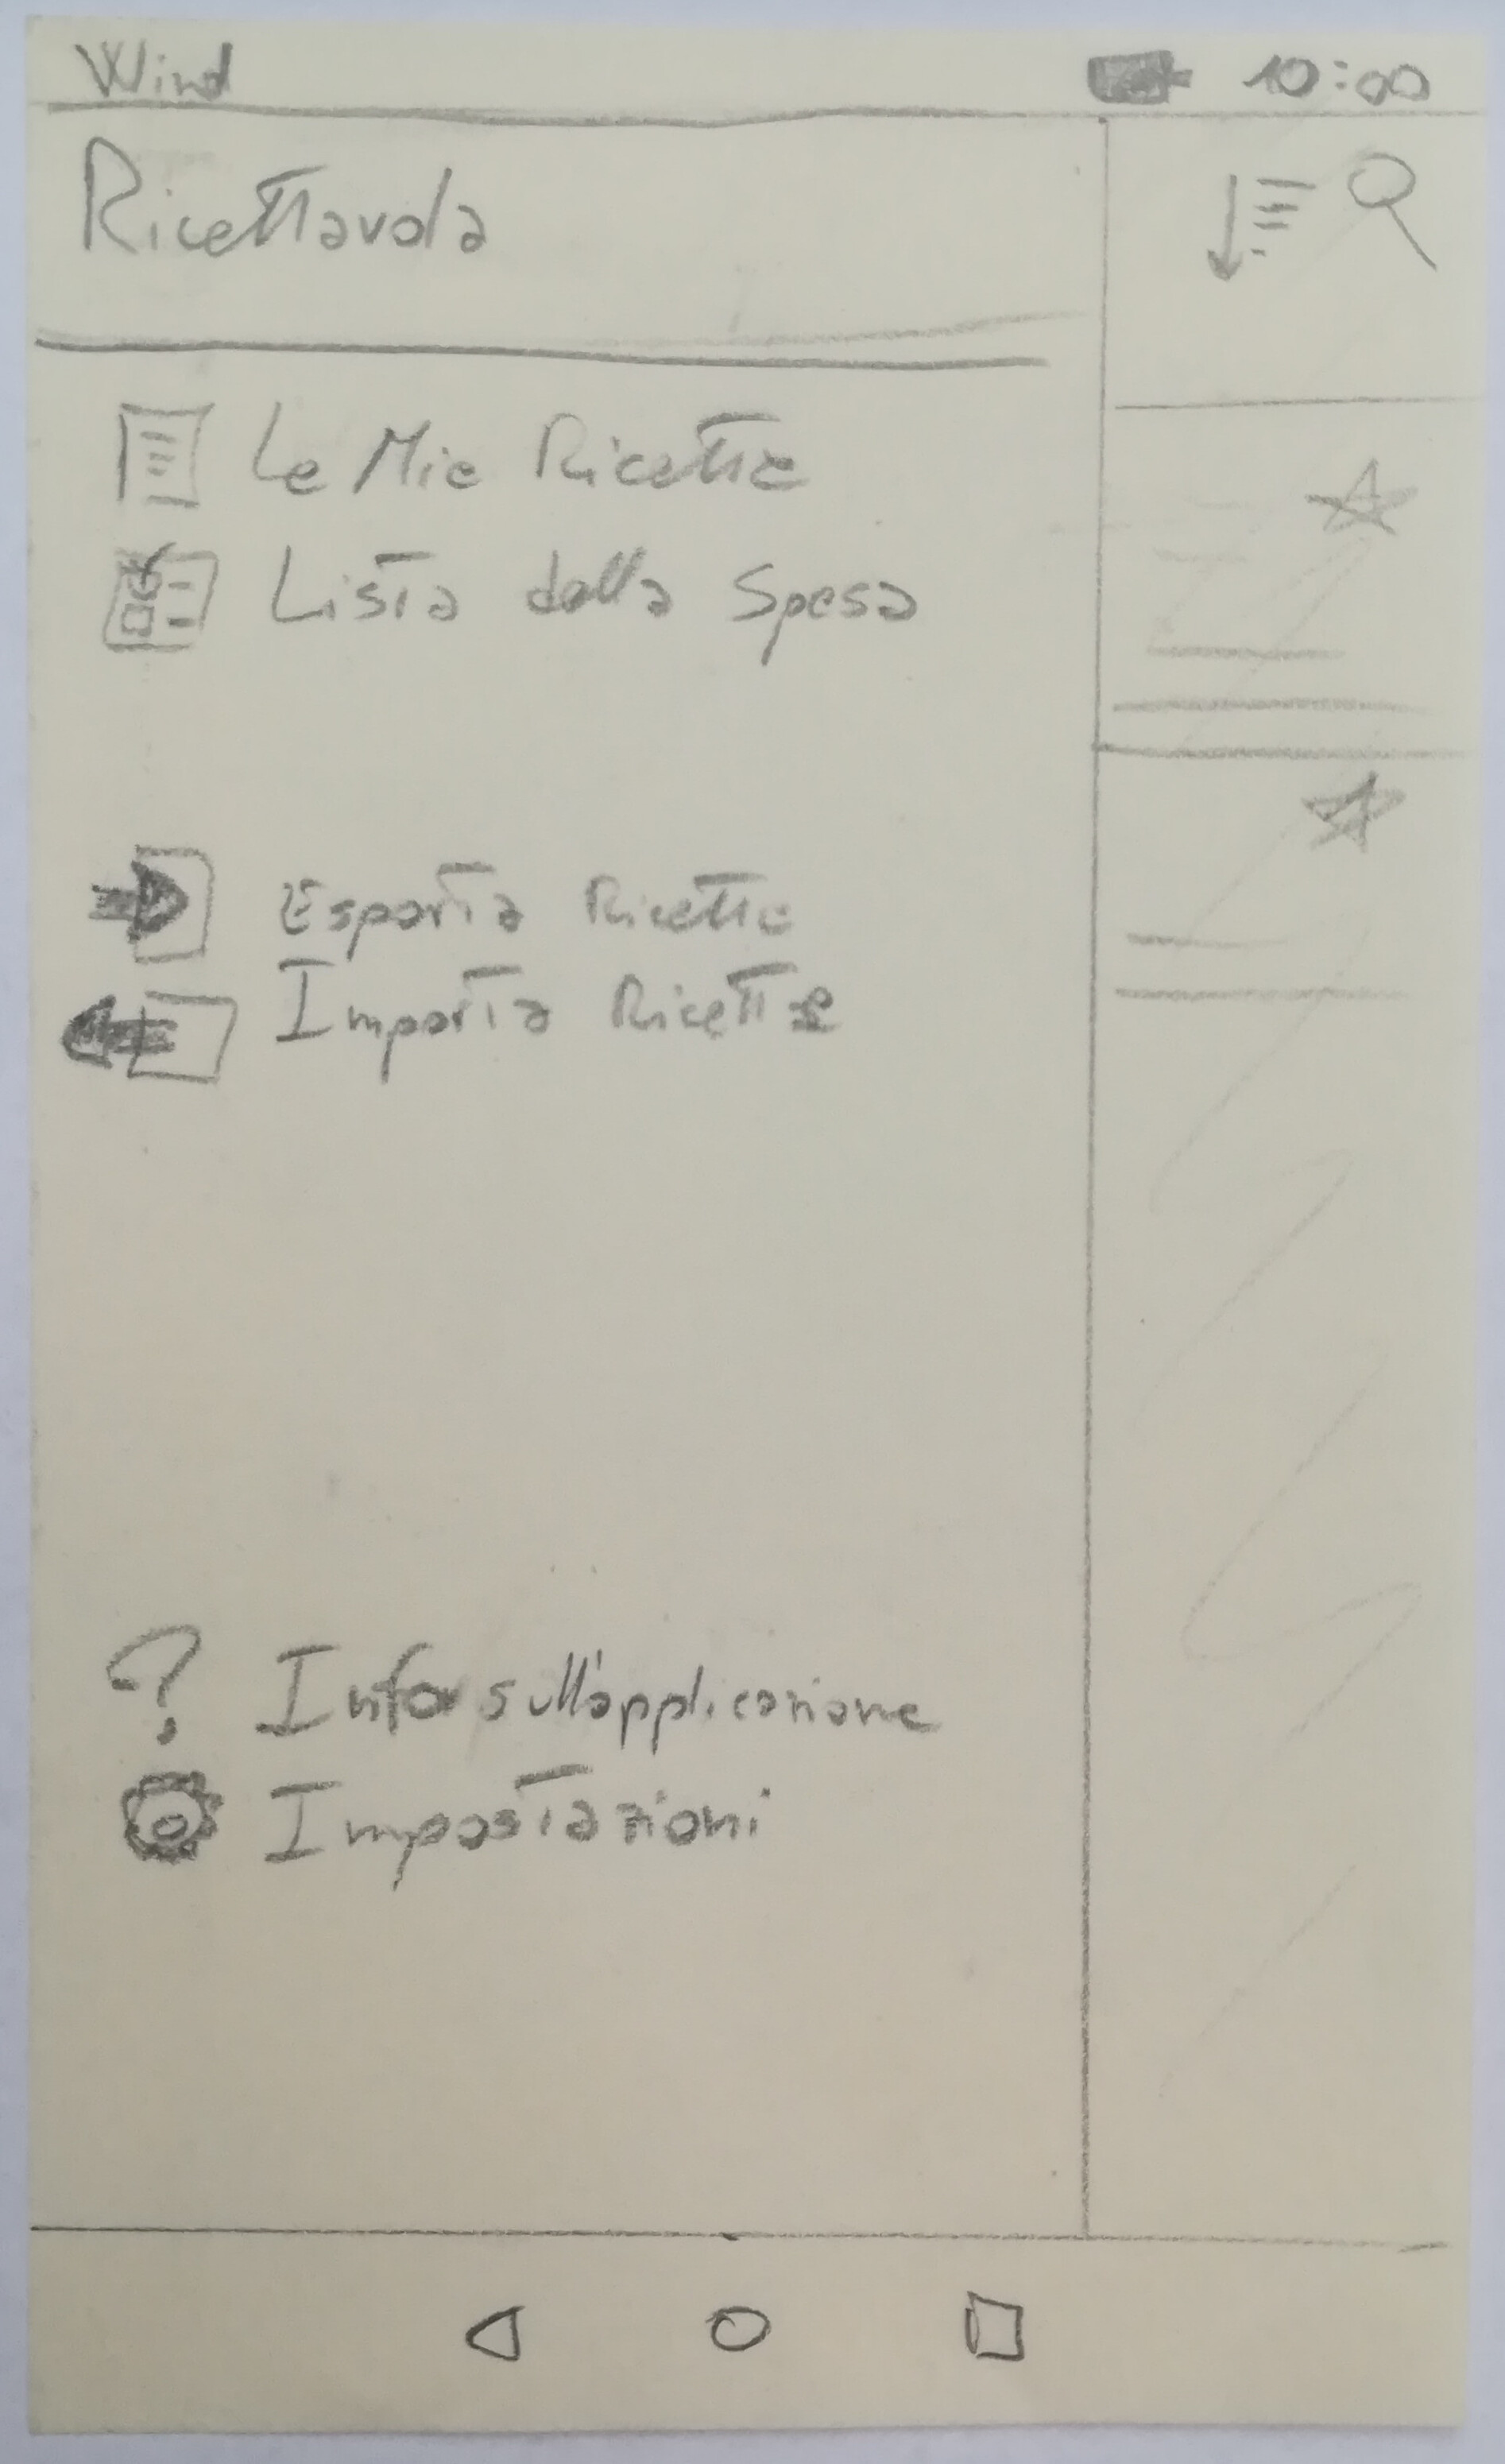 Wind 10:00
Ricettavola
Le Mie Ricette
Lista della Spesa
Esporta Ricette
Importa Ricette
Info sull'applicazione
Impostazioni